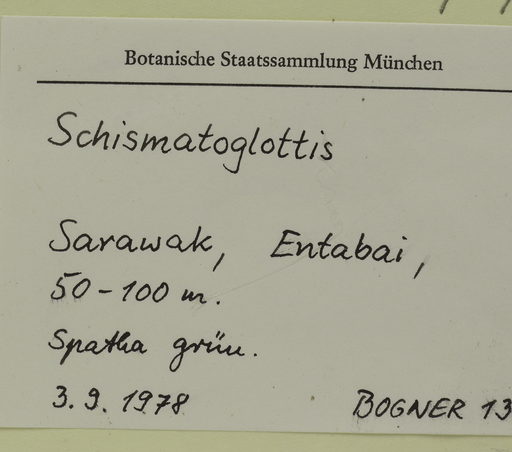 Botanische Staatssammlung München
Schismatoglottis
Sarawak, Entabai,
50-100 m.
Spatha grün.
3. 9. 1978 BOGNER 13